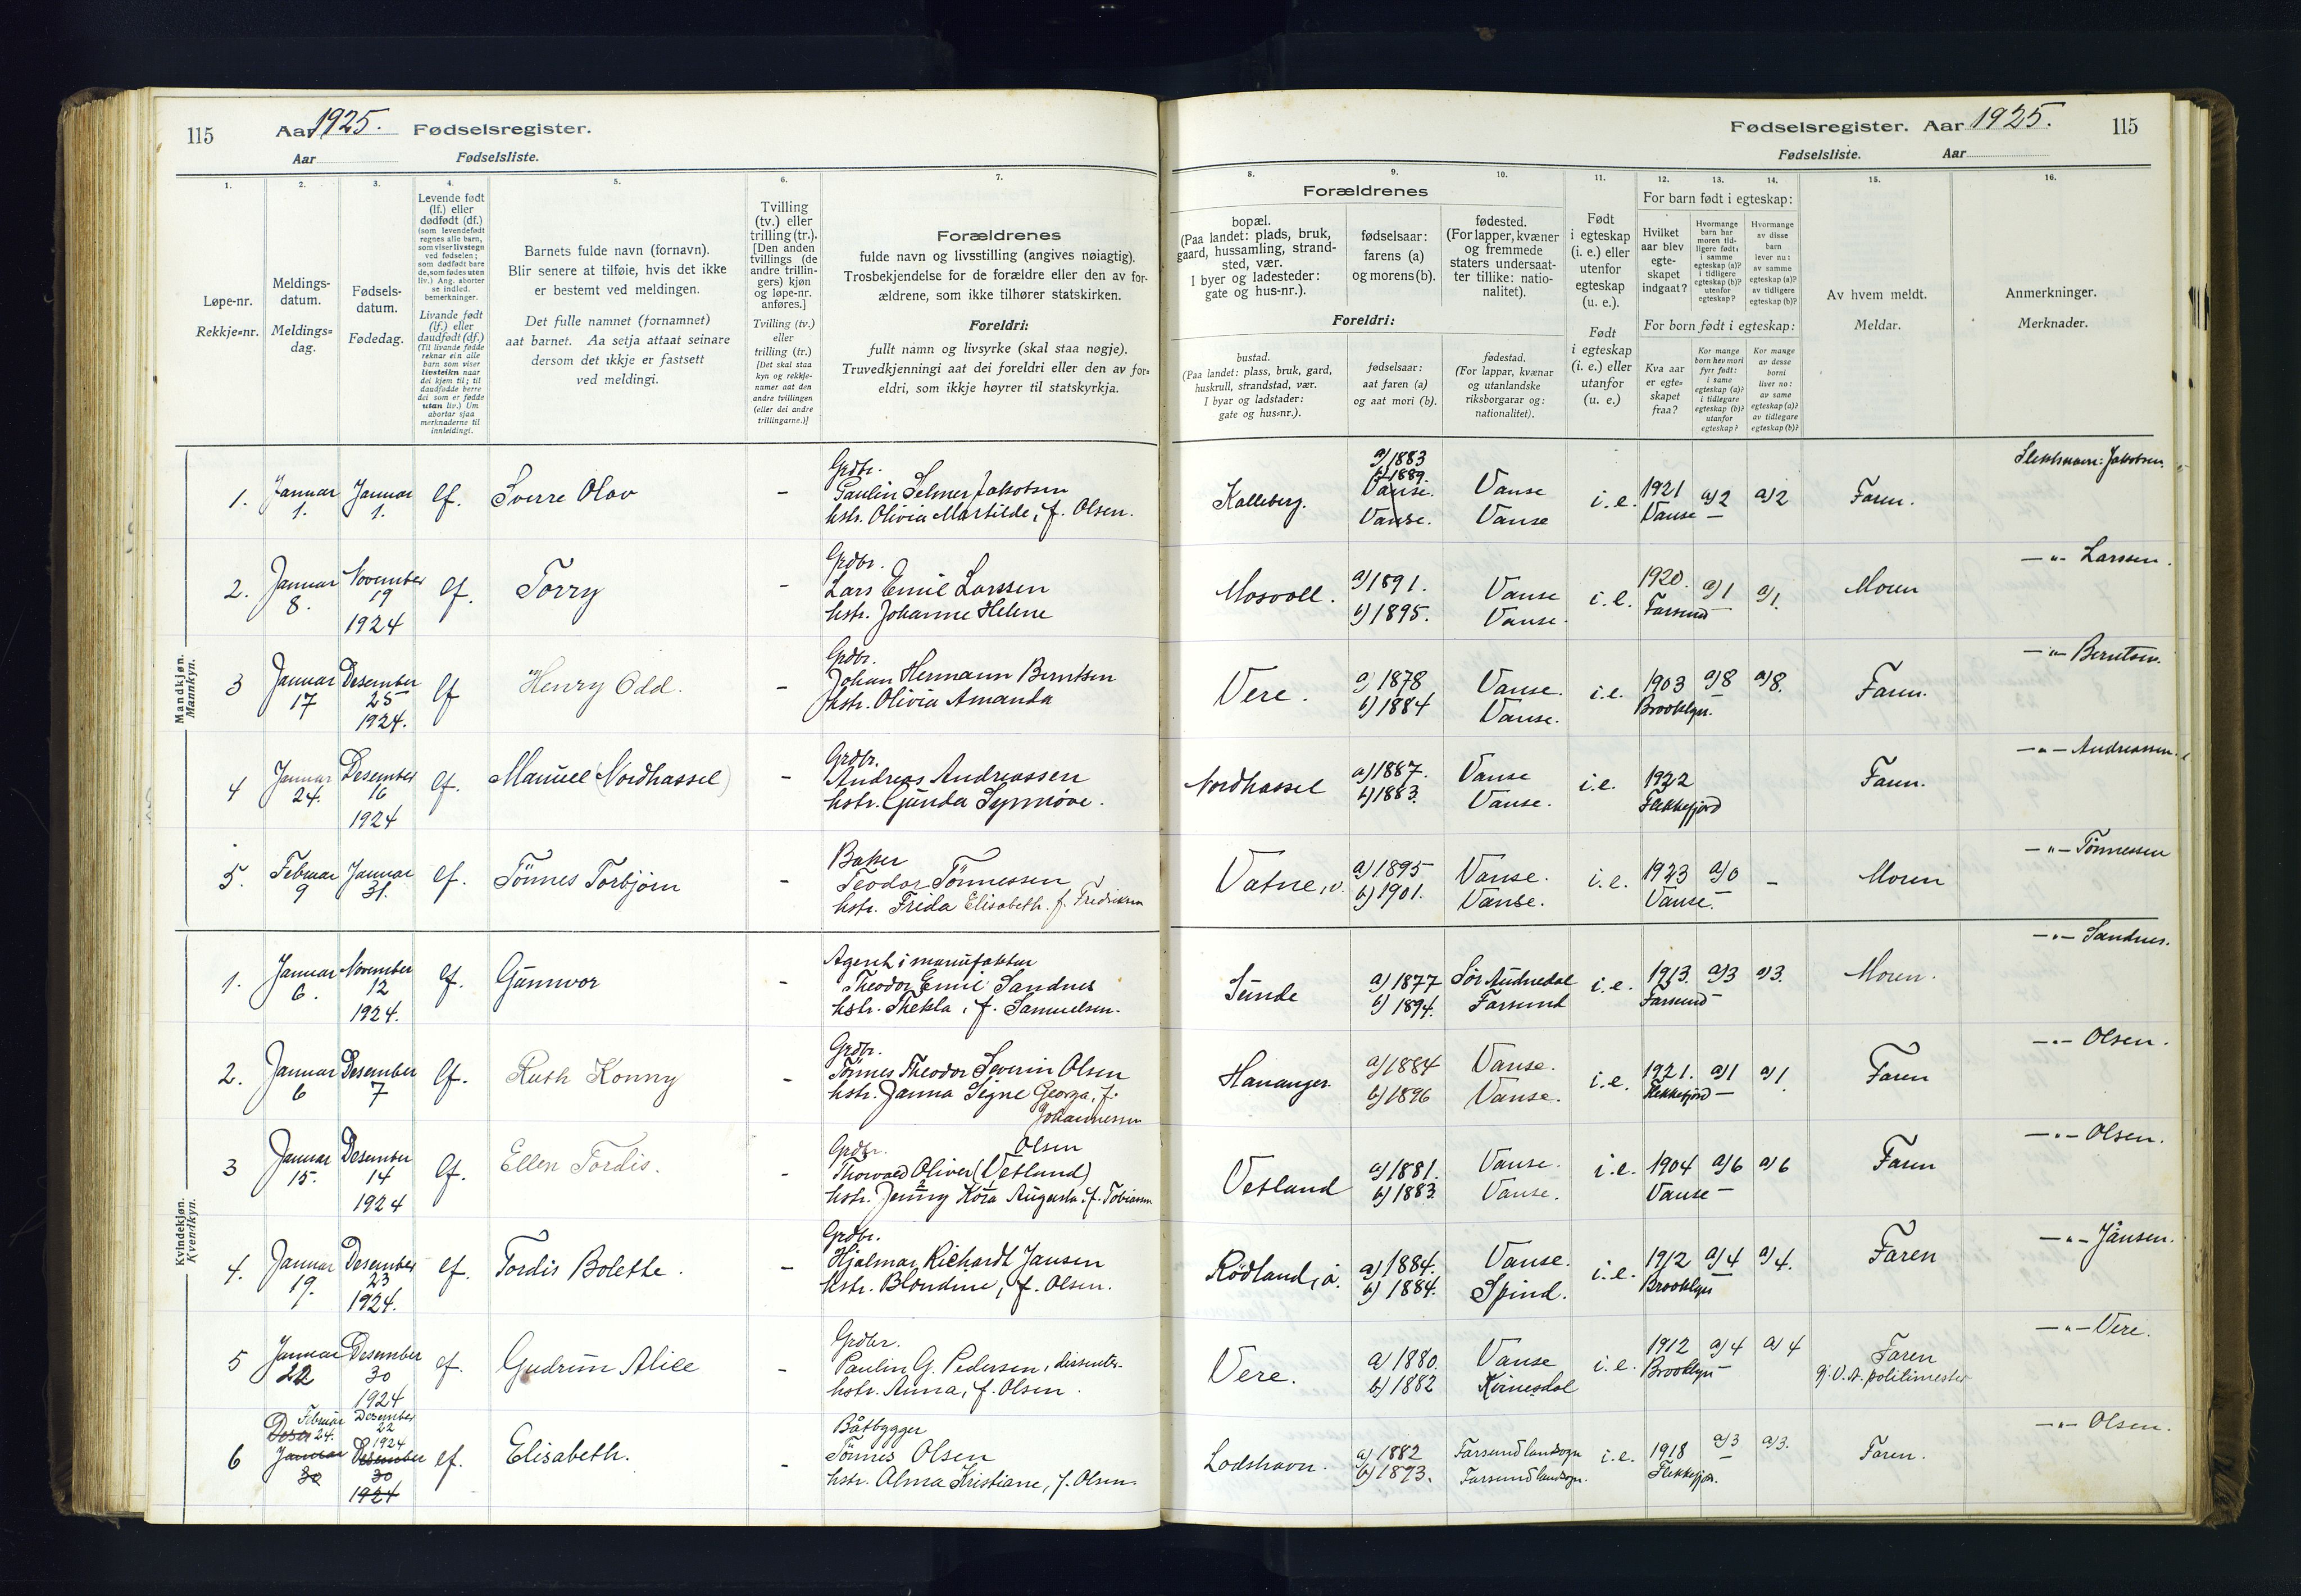 115
Aar 1925. Fødselsregister.
Aar
Fødselsliste.
Fødselsregister. Aar 1925.
115
Fødselsliste.
Aar
1.
Løpe-nr.
Rekkje=nr.
2.
Meldings-
datum.
Meldings-
dag.
3.
Fødsels-
datum.
Fødedag.
4.
Levende født
(lf.) eller
dødfødt (df.)
(som levendefødt
regnes alle barn,
som viser livstegn
ved fødselen;
som dødfødt bare
de, som fødes uten
liv.) Ang. aborter
se indled.
bemerkninger.
Livande født
(lf.) eller
daudfødt (df.)
(Til livande fødde
reknar ein alle
barn som viser
livsteikn naar
dei kjem til; til
daudfødde berre
dei som er fødde
utan liv.) Um
abortar sjaa
merknaderne til
innleidingi.
5.
Barnets fulde navn (fornavn).
Blir senere at tilføie, hvis det ikke
er bestemt ved meldingen.
Det fulle namnet (fornamnet)
aat barnet. Aa setja attaat seinare
dersom det ikkje er fastsett
ved meldingi.
6.
Tvilling
(tv.) eller
trilling (tr.).
[Den anden
tvillings (de
andre trillin-
gers) kjøn
og løpe-nr.
anføres.]
Tvilling (tv.)
eller
trilling (tr.)
[Det skal staa
kyn og rekkje-
numer aat den
andre tvillingen
(eller dei andre
trillingarne.)]
7.
Forældrenes
fulde navn og livsstilling (angives nøiagtig).
Trosbekjendelse for de forældre eller den av for-
ældrene, som ikke tilhører statskirken.
Foreldri:
fullt namn og livsyrke (skal staa nøgje).
Truvedkjenningi aat dei foreldri eller den av for=
eldri, som ikkje høyrer til statskyrkja.
Forældrenes
8.
bopæl.
(Paa landet: plads, bruk,
gaard, hussamling, strand-
sted, vær.
I byer og ladesteder:
gate og hus-nr.).
9.
fødselsaar:
farens (a)
og morens (b).
10.
fødested.
(For lapper, kvæner
og fremmede
staters undersaat-
ter tillike: natio-
nalitet).
Foreldri:
bustad.
(Paa landet: plass, bruk, gard,
huskrull, strandstad, vær.
I byar og ladstader:
gate og hus=nr.).
fødselsaar:
aat faren (a)
og aat mori (b).
fødestad.
(For lappar, kvænar
og utanlandske
riksborgarar og:
nationalitet).
11.
Født
i egteskap
(i. e.) eller
utenfor
egteskap
(u. e.).
Født
i egteskap
(i. e.) eller
utanfor
egteskap
(u. e.)
12.
13.
14.
For barn født i egteskap:
Hvilket
aar blev
egte-
skapet
indgaat?
Hvormange
barn har
moren tid-
ligere født:
i samme
egteskap (a)?
i tidligere
egteskap (b)?
utenfor
egteskap?
Hvormange
av disse
barn
lever nu:
av samme
egteskap (a)?
av tidligere
egteskap (b)?
For born født i egteskap:
Kva aar
er egte=
skapet
fraa?
Kor mange
born hev mori
fyrr født:
i same
egteskap (a)?
i tidlegare
egteskap (b)?
utanfor
egteskap?
Kor mange
av desse
borni
liver no:
av same
egteskap (a)?
av tidlegare
egteskap (b)?
15.
Av hvem meldt.
Meldar.
16.
Anmerkninger.
Merknader.
Mandkjøn.
Mannkyn.
1. Januar 1. Januar 1. lf. Sverre Olav -
Grdbr.
Paulin Selmer Jakobsen
hstr. Olivia Martilde, f. Olsen.
Kalleberg. a) 1883 b) 1889. Vanse. Vanse. Vanse Vanse i.e. 1921 Vanse a) 2 - a) 2 Faren. Slektsnavn: Jakobsen.
2. Januar 8. November 19 1924 lf. Torry -
Grdbr.
Lars Emil Larssen
hstr. Johanne Helene
Mosvoll. a) 1891. b) 1895. Vanse Vanse. i.e. 1920. Farsund a) 1 - a) 1. Moren -"- Larssen.
3 Januar 17 Desember 25 1924. lf Henry Odd. -
Grdbr.
Johan Hermann Berntsen
hstr. Olivia Amanda
Vere. a) 1878 b) 1884 Vanse. Vanse. i.e. 1903 Brooklyn. a) 8 - a) 8. Faren. -"- Berntsen.
4 Januar 24. Desember 16 1924 lf. Manuel (Nordhassel) -
Grdbr.
Andreas Andreassen
hstr. Gunda Synnøve.
Nordhassel a) 1887. b) 1883. Vanse Vanse. i.e. 1922 Flekkefjord Faren. -"- Andreassen.
5. Februar 9 Januar 31. lf. Tönnes Torbjørn -
Baker
Teodor Tönnessen
hstr. Frida Elisabeth. f. Fredriksen
Vatne, v. a) 1895 b) 1901. Vanse. Vanse. i.e. 1923 Vanse. a) 0 - - Moren -"- Tönnessen
Kvindekjøn.
Kvendkyn.
1. Januar 6. November 12 1924. lf. Gunnvor -
Agent i manufaktur
Theodor Emil Sandnes
hstr. Thekla, f. Samuelsen.
Sunde a) 1877 b) 1894. Sör Audnedal Farsund i.e. 1913. Farsund a) 3 - a) 3. Moren. -"- Sandnes.
2. Januar 6 Desember 7 lf. Ruth Konny -
Grdbr.
Tönnes Theodor Severin Olsen
hstr. Janna Signe Georga, f.
Johannessen
Hananger. a) 1884 b) 1896 Vanse. Vanse. i.e. 1921. Flekkefjord a) 1 - a) 1. Faren -"- Olsen.
3 Januar 15. Desember 14 1924 lf. Ellen Tordis. -
Grdbr. Olsen
Thorvald Oliver (Vetland)
hstr. Jenny Kora Augusta. f. Tobiassen
Vetland a) 1881. b) 1883. Vanse. Vanse. i.e. 1904 Vanse a) 6 - a) 6 Faren -"- Olsen.
4. Januar 19. Desember 23 1924. lf. Tordis Bolethe. -
Grdbr.
Hjalmar Richardt Jansen
hstr. Blondine, f. Olsen.
Rödland, ö. a) 1884. b) 1884. Vanse. Spind. i.e. 1912 Brooklyn a) 4 - a) 4. Faren -"- Jansen.
5 Januar 22 Desember 30 1924 lf. Gudrun Alice -
Grdbr.
Paulin G. Pedersen, dissenter.
hstr. Anna, f. Olsen.
Vere. a) 1880. b) 1882 Vanse Kvinesdal i.e. 1912 Brooklyn a) 4 - a) 4 Faren gj. V.A. politimester -"- Vere.
6 Februar 24. Januar 30 Desember 22 1924 Desember 30 1924 lf. Elisabeth. -
Båtbygger
Tönnes Olsen
hstr. Alma Kristiane, f. Olsen.
Lodshavn. a) 1882 b) 1893. Farsund landsogn Farsund landsogn. i.e. 1918 Flekkefjor. a) 3 - a) 3. Faren. -"- Olsen.